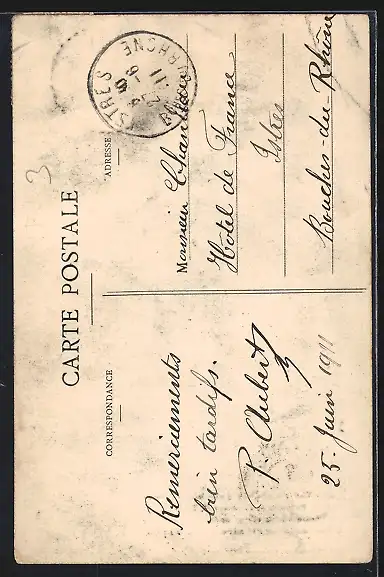 CARTE POSTALE
CORRESPONDANCE
ADRESSE
Remerciements
bien tardifs.
P. Aubert
25 Juin 1911
Monsieur
Hôtel de France
Istres
Bouches-du-Rhône
3